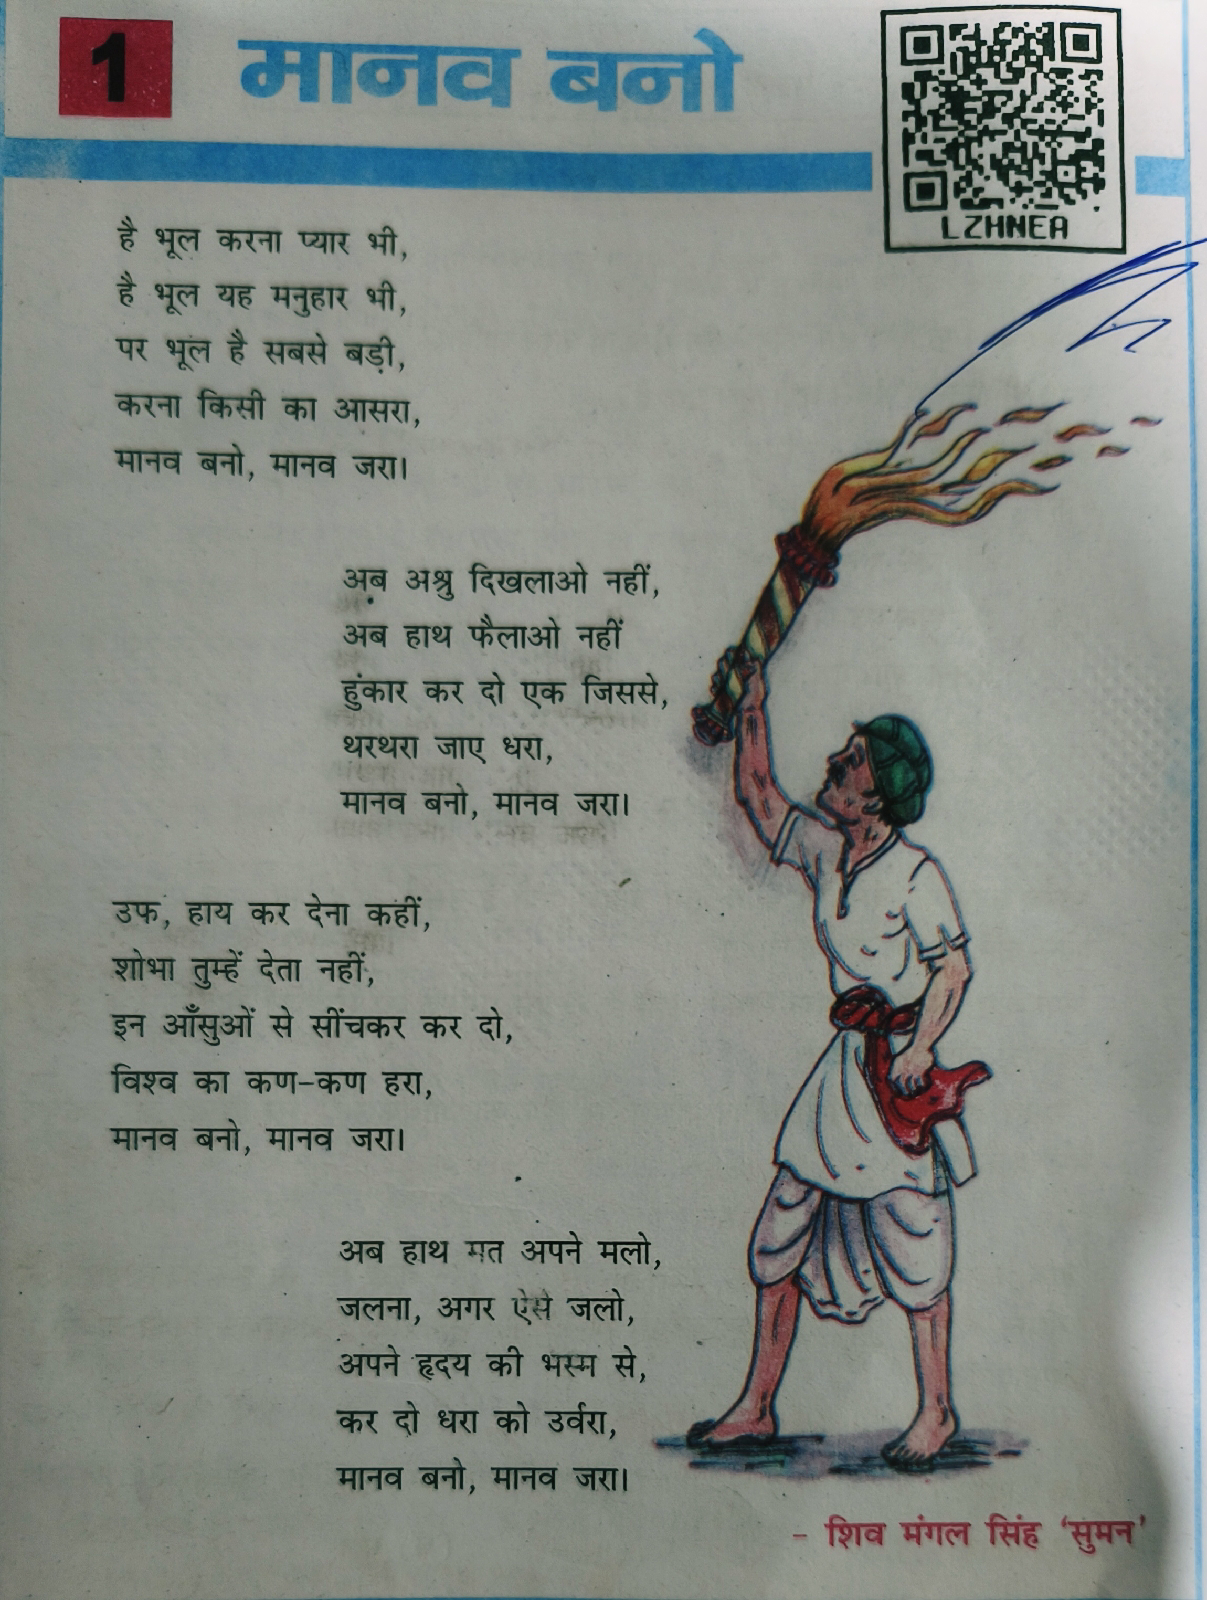 1 मानव बनो
LZHNEA
है भूल करना प्यार भी,
है भूल यह मनुहार भी,
पर भूल है सबसे बड़ी,
करना किसी का आसरा,
मानव बनो, मानव जरा।
अब अश्रु दिखलाओ नहीं,
अब हाथ फैलाओ नहीं
हुंकार कर दो एक जिससे,
थरथरा जाए धरा,
मानव बनो, मानव जरा।
उफ, हाय कर देना कहीं,
शोभा तुम्हें देता नहीं,
इन आँसुओं से सींचकर कर दो,
विश्व का कण-कण हरा,
मानव बनो, मानव जरा।
अब हाथ मत अपने मलो,
जलना, अगर ऐसे जलो,
अपने हृदय की भस्म से,
कर दो धरा को उर्वरा,
मानव बनो, मानव जरा।
- शिव मंगल सिंह 'सुमन'